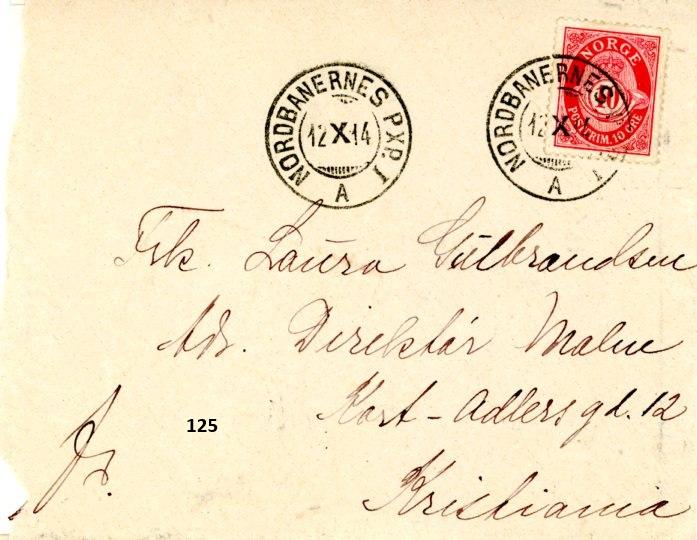 NORDBANERNES PXP. I
12 X 14
A
NORDBANERNES
12 X 1
A I
NORGE
10
POSTFRIM. 10 ØRE
Frk. Laura Gulbrandsen
Adr. Direktør Malm
Kort-Adlersgd. 12
125
fr.
Kristiania